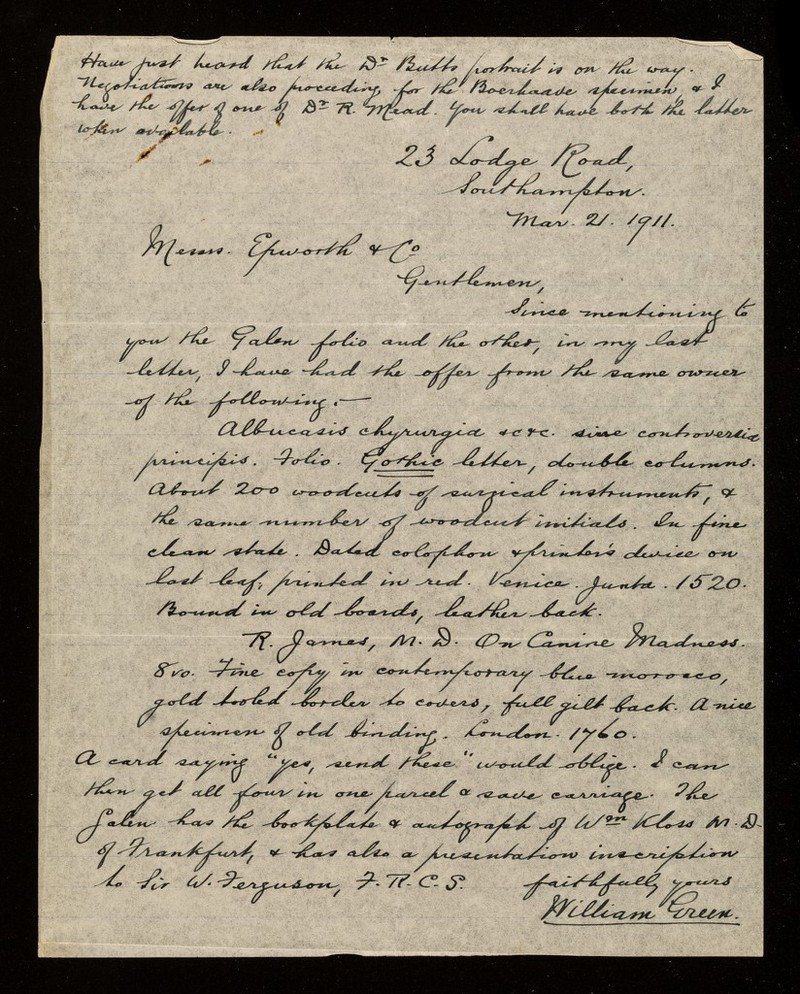 Have just heard that the Dr Butts portrait is on the way.
Negotiations are also proceeding for the Boerhaave specimen, & I
have the offer of one of Dr R. Mead. You shall have both the latter
when available.
23 Lodge Road,
Southampton.
Mar. 21. 1911.
Messrs. Epworth & Co
Gentlemen,
Since mentioning to
you the Galen folio and the other, in my last
letter, I have had the offer from the same owner
of the following:—
Albucasis chyrurgia &c&c. sine controversia
principis. Folio. Gothic letter, double columns.
About 200 woodcuts of surgical instruments, &
the same number of woodcut initials. In fine
clean state. Dated colophon & printer's device on
last leaf, printed in red. Venice. Junta. 1520.
Bound in old boards, leather back.
R. James, M. D. On Canine Madness.
8vo. Fine copy in contemporary blue morocco,
gold tooled border to covers, full gilt back. A nice
specimen of old binding. London. 1760.
A card saying "yes, send these" would oblige. I can
then get all four in one parcel & save carriage. The
Galen has the bookplate & autograph of Wm Kloss M. D.
of Frankfurt, & has also a presentation inscription
to Sir W. Ferguson, F. R. C. S. faithfully yours
William Green.